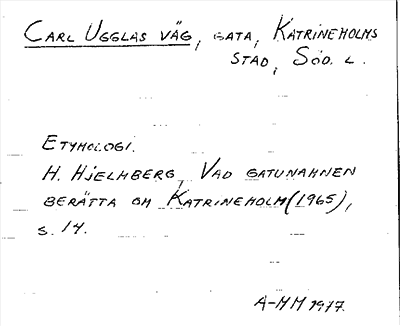 CARL UGGLAS VÄG, GATA, KATRINEHOLMS
STAD, SÖD. L.
ETYMOLOGI.
H. HJELMBERG, VAD GATUNAMNEN
BERÄTTA OM KATRINEHOLM (1965),
S. 14.
A-MM 1977.